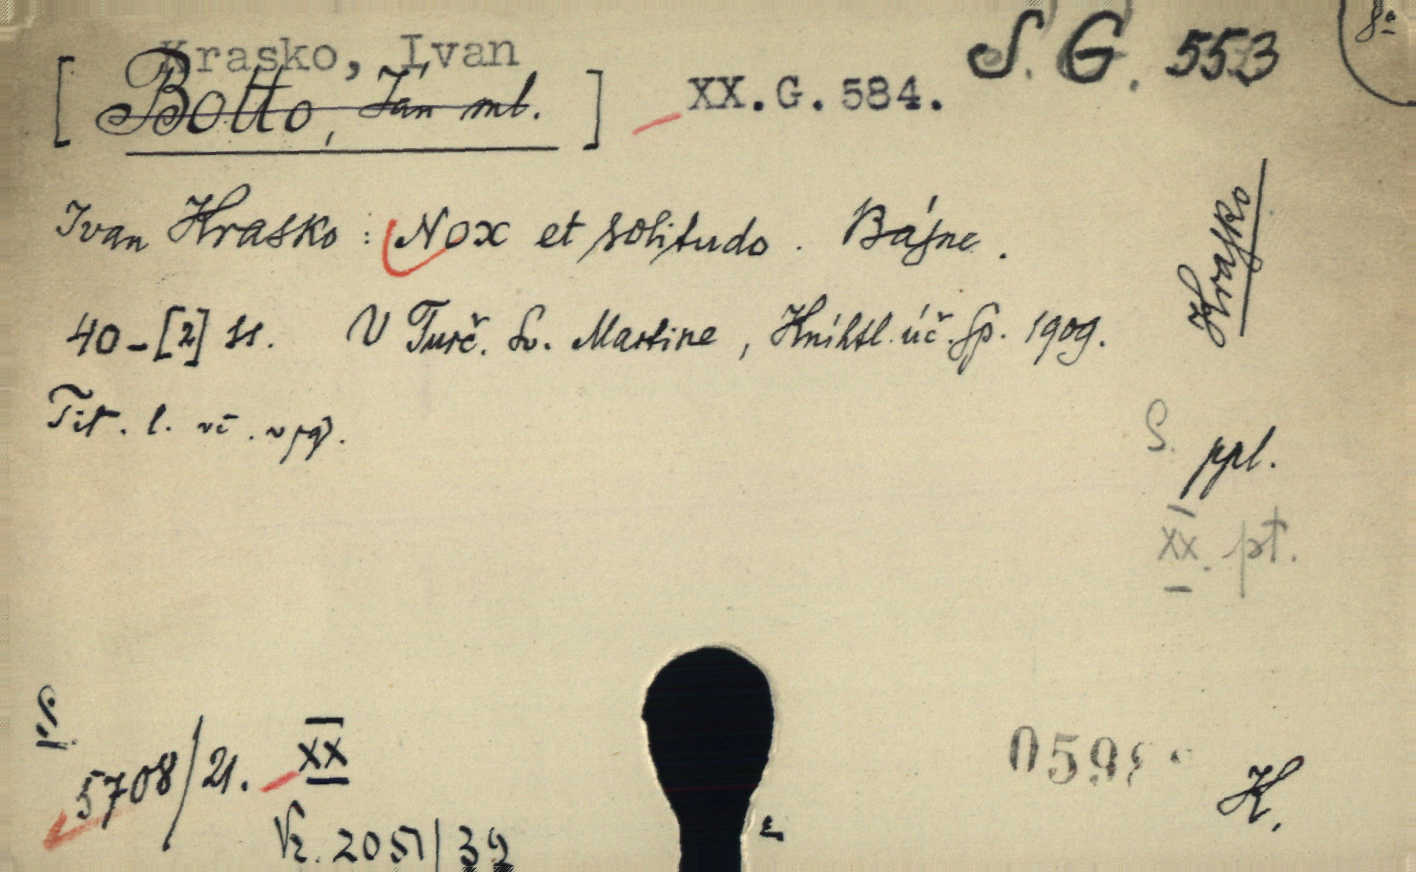 Krasko, Ivan
[Botto, Ján ml.]
XX.G.584.
S. G. 553
8°
Ivan Krasko: Nox et solitudo. Básne.
Krasko
40-[2] ss. V Turč. Sv. Martine, Kníhtl. úč. sp. 1909.
Tit. l.
S. ppl.
XX. pt.
5708/21. XX
2051/39
059
K.